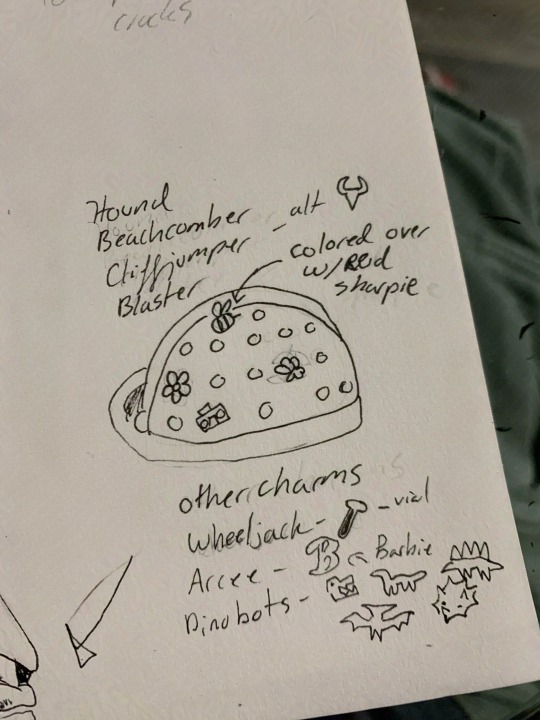 cracks
Hound
Beachcomber
Cliffjumper - alt
Blaster
colored over
w/ Red
sharpie
other charms
Wheeljack - - vial
Arcee - B Barbie
Dinobots -